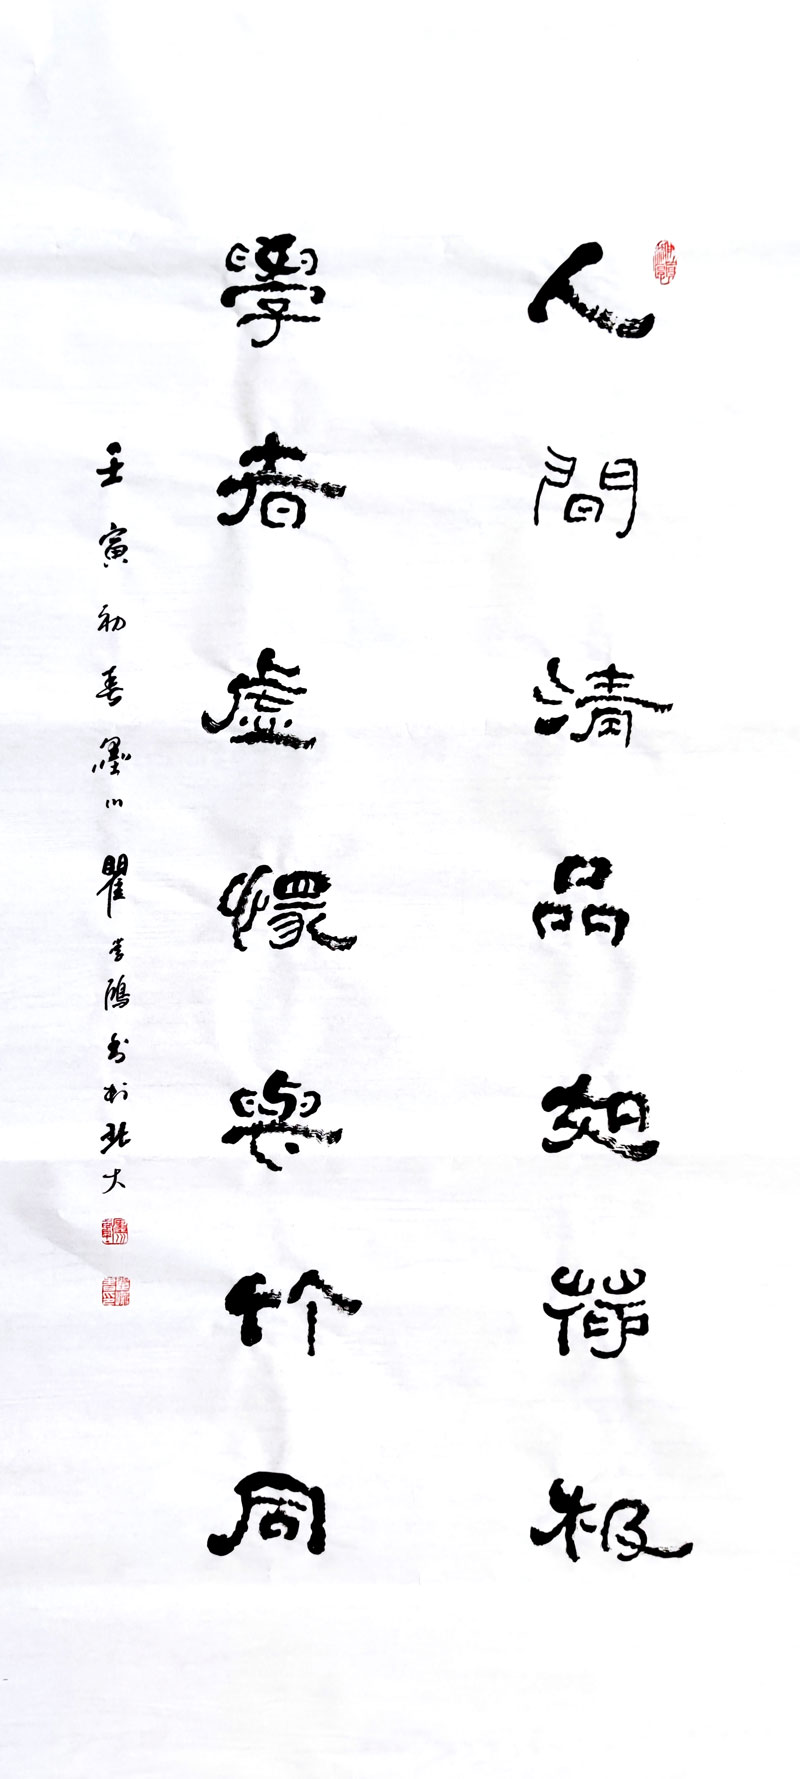 人間清品如荷極
學者虛懷與竹同
壬寅初春墨川瞿 鴻書於北大